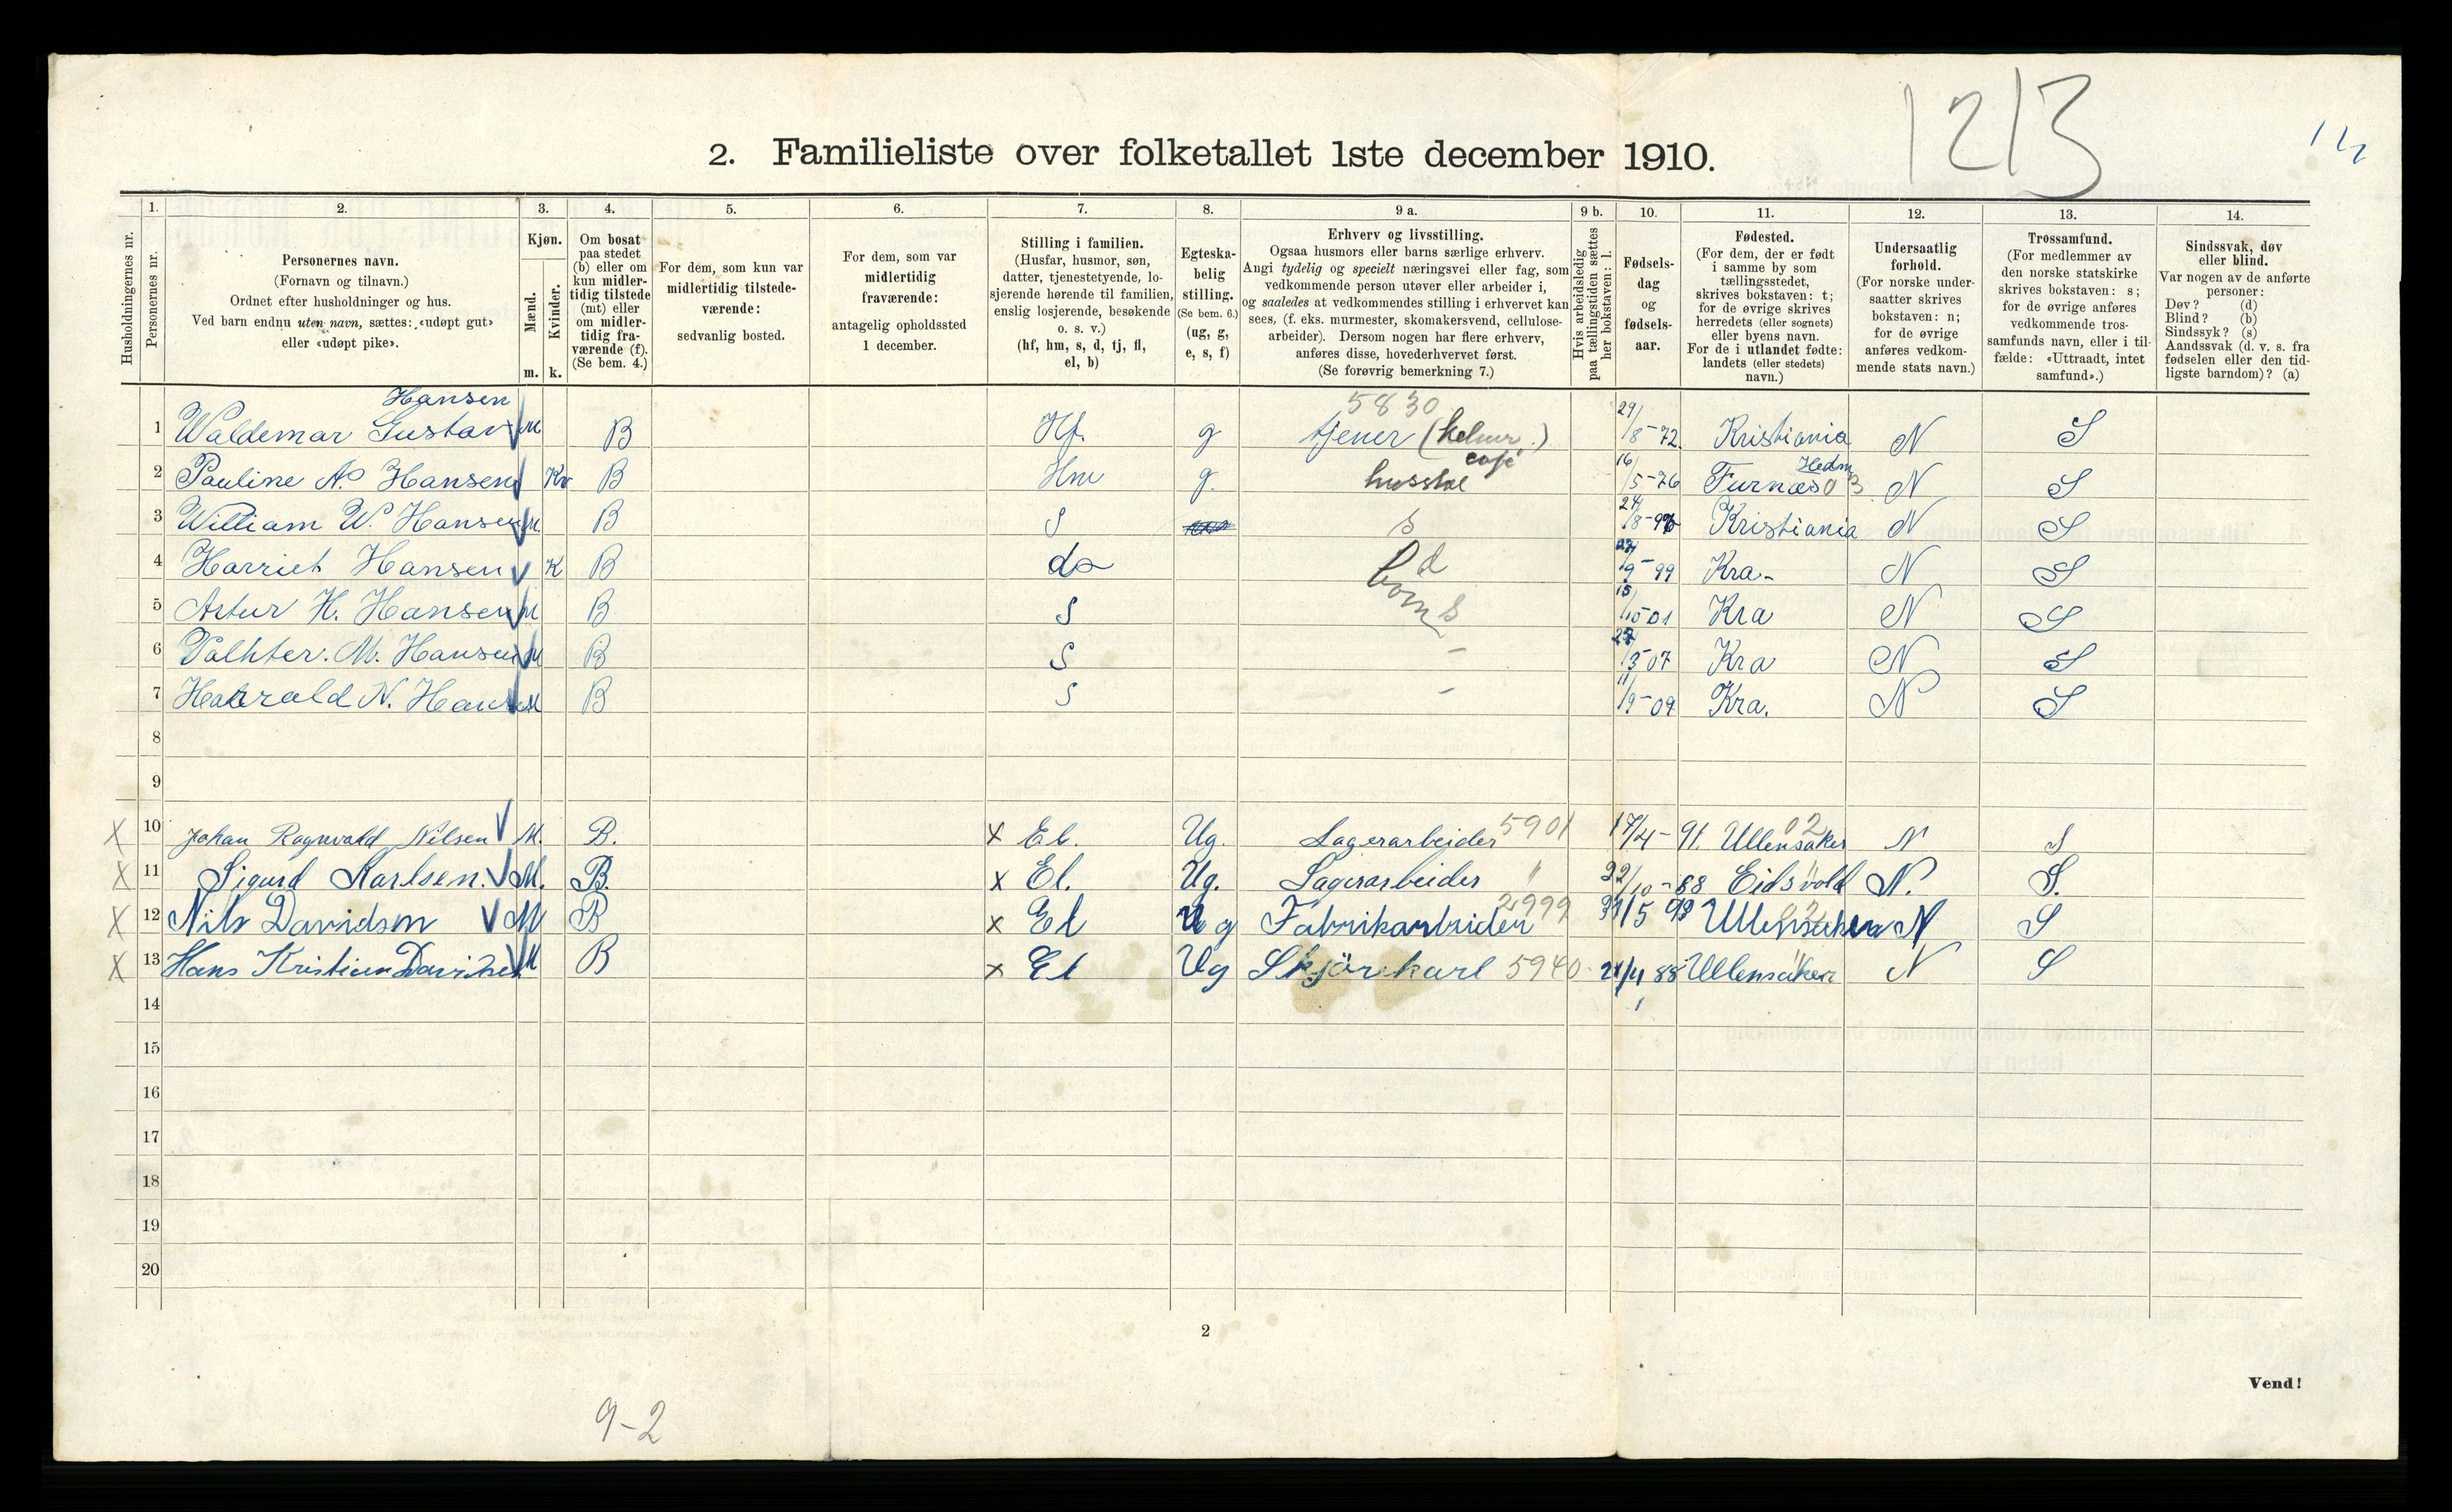 1213
2. Familieliste over folketallet 1ste december 1910.
Husholdningernes nr.
1. Personernes nr.
2. Personernes navn.
(Fornavn og tilnavn.)
Ordnet efter husholdninger og hus.
Ved barn endnu uten navn, sættes: «udøpt gut»
eller «udøpt pike».
3. Kjøn.
Mænd. Kvinder.
m. k.
4. Om bosat
paa stedet
(b) eller om
kun midler-
tidig tilstede
(mt) eller
om midler-
tidig fra-
værende (f).
(Se bem. 4.)
5. For dem, som kun var
midlertidig tilstede-
værende:
sedvanlig bosted.
6. For dem, som var
midlertidig
fraværende:
antagelig opholdssted
1 december.
7. Stilling i familien.
(Husfar, husmor, søn,
datter, tjenestetyende, lo-
sjerende hørende til familien,
enslig losjerende, besøkende
o. s. v.)
(hf, hm, s, d, tj, fl,
el, b)
8. Egteska-
belig
stilling.
(Se bem. 6.)
(ug, g,
e, s, f)
9 a. Erhverv og livsstilling.
Ogsaa husmors eller barns særlige erhverv.
Angi tydelig og specielt næringsvei eller fag, som
vedkommende person utøver eller arbeider i,
og saaledes at vedkommendes stilling i erhvervet kan
sees, (f. eks. murmester, skomakersvend, cellulose-
arbeider). Dersom nogen har flere erhverv,
anføres disse, hovederhvervet først.
(Se forøvrig bemerkning 7.)
9 b. Hvis arbeidsledig
paa tællingstiden sættes
her bokstaven: l.
10. Fødsels-
dag
og
fødsels-
aar.
11. Fødested.
(For dem, der er født
i samme by som
tællingsstedet,
skrives bokstaven: t;
for de øvrige skrives
herredets (eller sognets)
eller byens navn.
For de i utlandet fødte:
landets (eller stedets)
navn.)
12. Undersaatlig
forhold.
(For norske under-
saatter skrives
bokstaven: n;
for de øvrige
anføres vedkom-
mende stats navn.)
13. Trossamfund.
(For medlemmer av
den norske statskirke
skrives bokstaven: s;
for de øvrige anføres
vedkommende tros-
samfunds navn, eller i til-
fælde: «Uttraadt, intet
samfund».)
14. Sindssvak, døv
eller blind.
Var nogen av de anførte
personer:
Døv? (d)
Blind? (b)
Sindssyk? (s)
Aandssvak (d. v. s. fra
fødselen eller den tid-
ligste barndom)? (a)
Hansen 5830
1 Waldemar Gustav M B Hf. g tjener (kelner.) café 29/8-72 Kristiania N S
2 Pauline N. Hansen Kv B Hm g. husstel 16/5-76 Furnæs Hedm 03 N S
3 William W. Hansen M B S s 24/8-96 Kristiania N S
4 Harriet Hansen K B da d 9-99 Kra. N S
5 Artur H. Hansen M B S barn s 15/10-01 Kra N S
6 M. Hansen M B S - 3-07 Kra N S
7 Harald N. Hansen M B S - 11/9-09 Kra. N S
8
9
X 10 Johan Ragnvald Nilsen M. B. X El. Ug. Lagerarbeider 5901 17/4-91. Ullensaker 02 N S
X 11 Sigurd Karlsen. M. B. X El. Ug. Lagerarbeider " 22/10-88 Eidsvold N. S.
X 12 Nils Davidsen M B X El Ug Fabrikarbeider 2999 31/5 93 Ullensaker N S
X 13 Hans Kristian Davidsen M B X El Ug Skjörekarl 5940 21/4 88 Ullensaker N S
14
15
16
17
18
19
20
2
Vend!
9-2